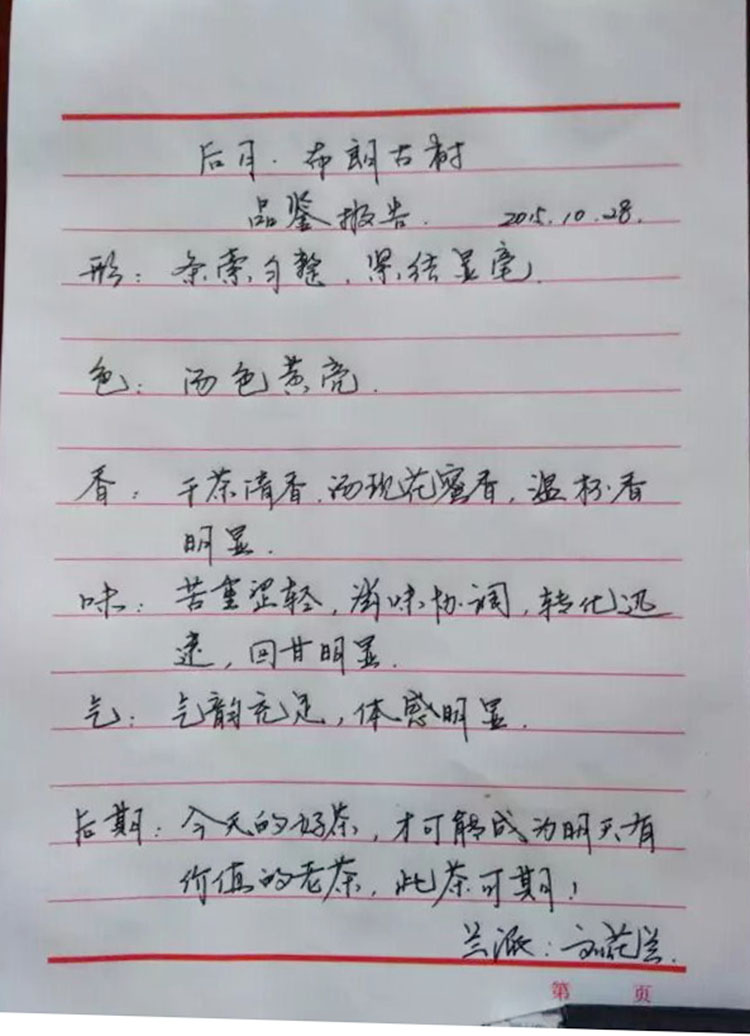 后月·布朗古树
品鉴报告. 2015.10.28.
形：条索匀整，紧结显毫.
色：汤色黄亮.
香：干茶清香.汤现花蜜香，温杯香
明显.
味：苦重涩轻，滋味协调，转化迅
速，回甘明显.
气：气韵充足，体感明显.
后期：今天的好茶，才可能成为明天有
价值的老茶，此茶可期！
兰派：文花兰.
第 页